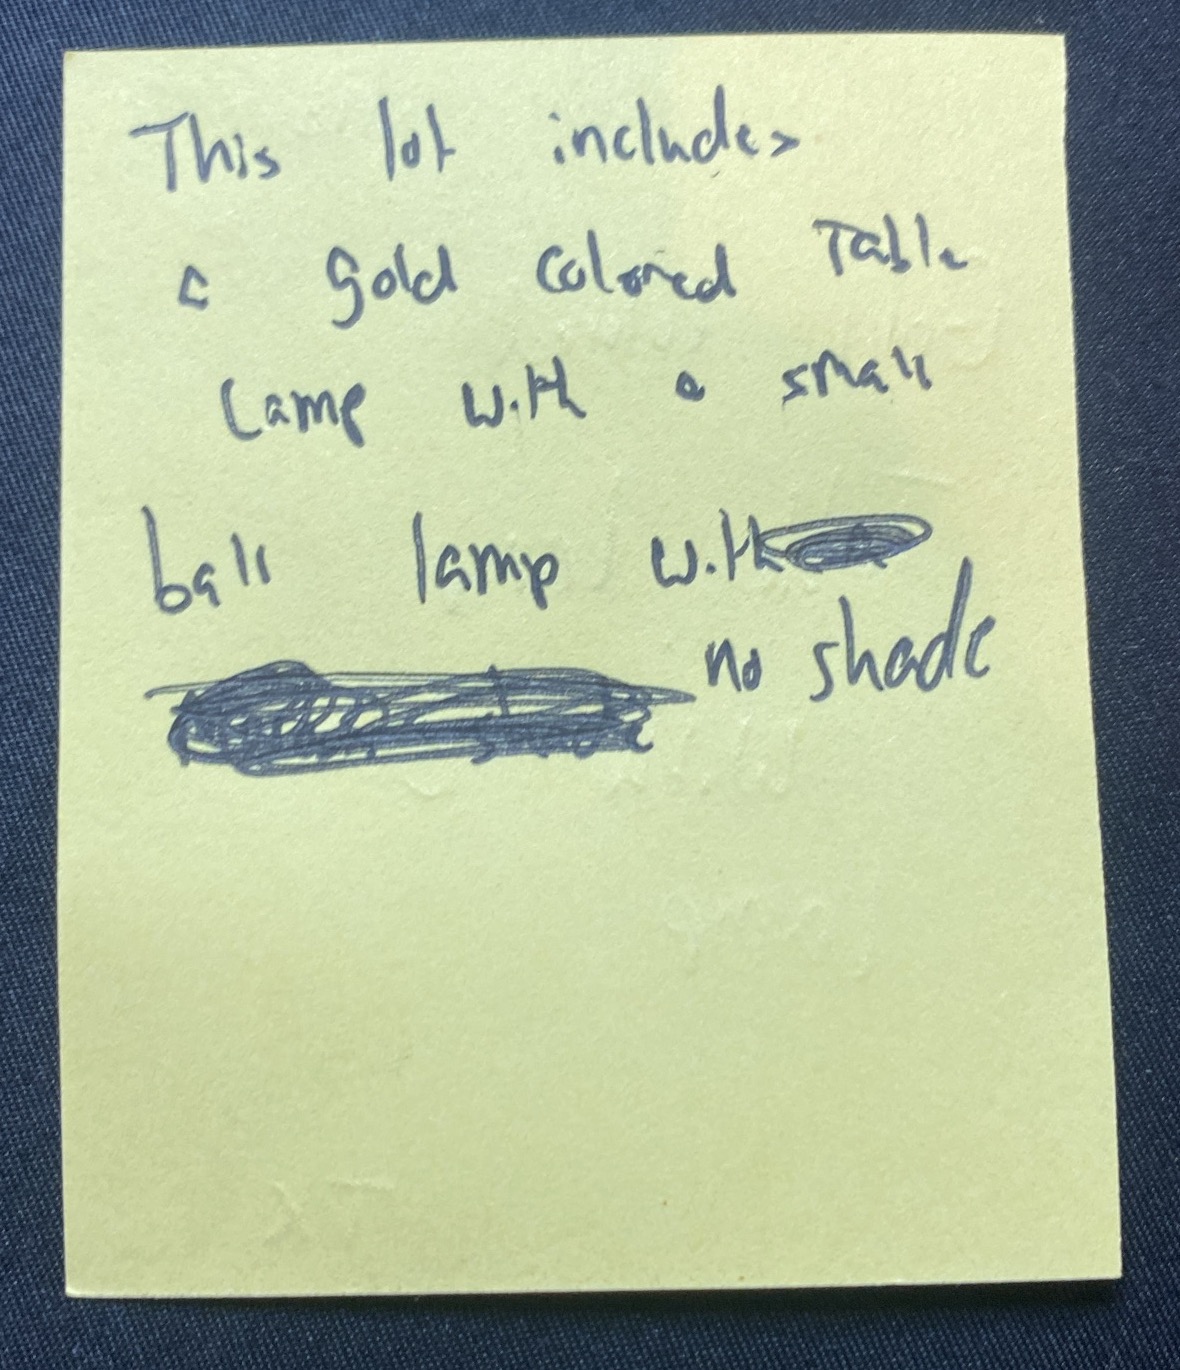 This lot includes
a gold colored Table
Lamp with a small
ball lamp with
no shade